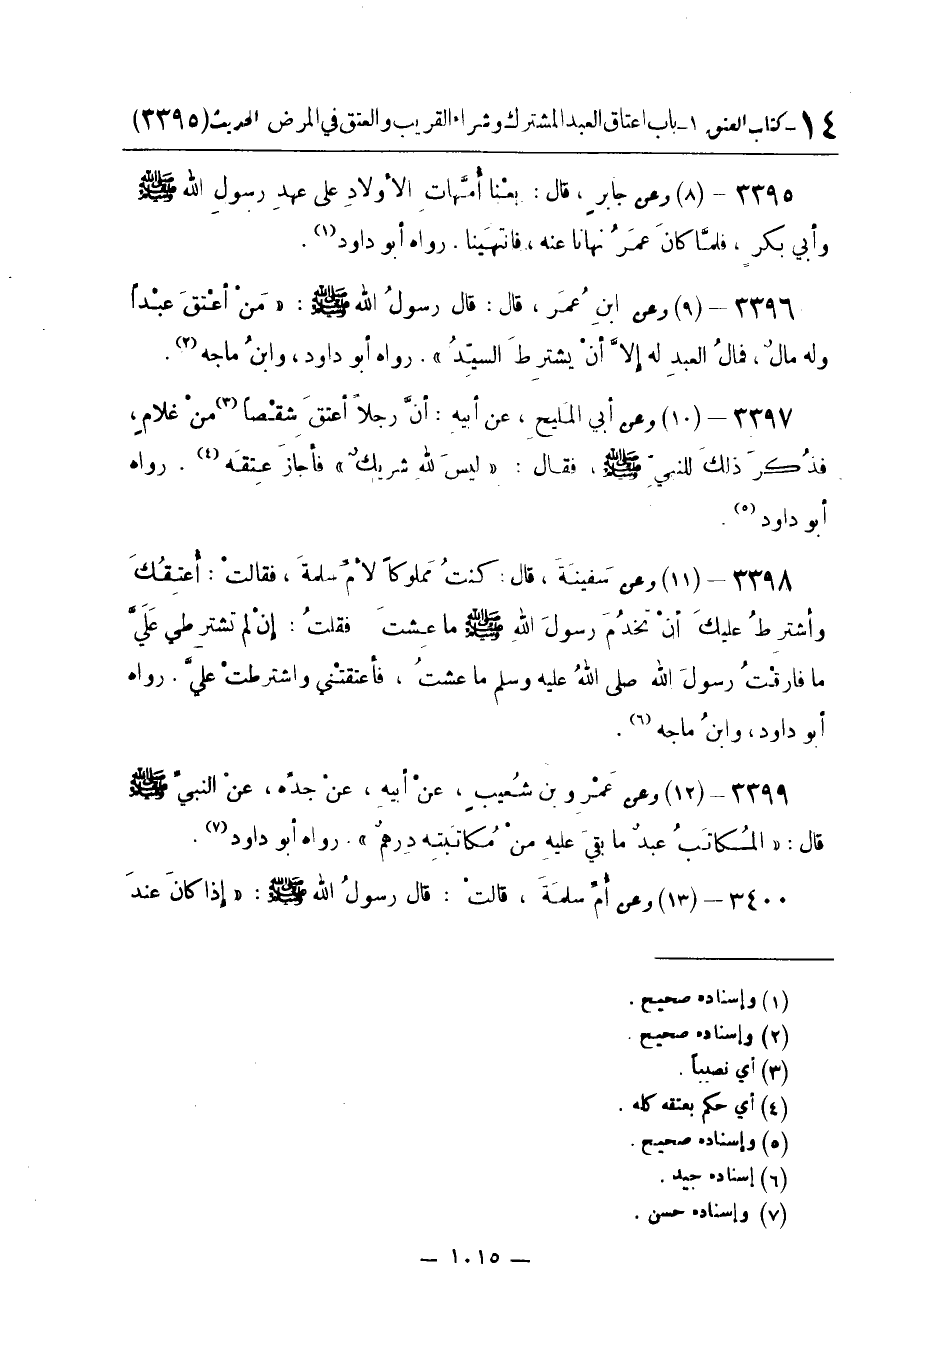 ١٤ - كتاب العتق ١ - باب اعتاق العبد المشترك وشراء القريب والعتق في المرض الحديث (٣٣٩٥)
٣٣٩٥ – (٨) وعن جابرٍ ، قال : بعْنا أُمَّهات الأولادِ على عهدِ رسولِ الله ﷺ
وأبي بكرٍ ، فلمَّا كانَ عمَرُ نهانا عنه ، فانتهَينا . رواه أبو داود(١) .
٣٣٩٦ – (٩) وعن ابنِ عُمَر ، قال : قال رسولُ الله ﷺ : « مَنْ أعْتقَ عبْداً
وله مالٌ ، فمالُ العبدِ له إلاَّ أنْ يشترِطَ السيّدُ » . رواه أبو داود ، وابنُ ماجه(٢) .
٣٣٩٧ – (١٠) وعن أبي المَليحِ ، عن أبيه : أنَّ رجلاً أعتقَ شقْصاً(٣) منْ غلامٍ ،
فذُكرَ ذلكَ للنبيّ ﷺ ، فقال : « ليسَ للهِ شريكٌ » فأجازَ عتقَه(٤) . رواه
أبو داود(٥) .
٣٣٩٨ – (١١) وعن سَفينَةَ ، قال : كنتُ مملوكاً لأمِّ سلمةَ ، فقالتْ : أُعتِقُكَ
وأشترِطُ عليكَ أنْ تخدُمَ رسولَ اللهِ ﷺ ما عشتَ فقلتُ : إنْ لم تشترِطي عَلَيَّ
ما فارقْتُ رسولَ الله صلى اللهُ عليه وسلم ما عشتُ ، فأعتقتْني واشترطتْ عليَّ . رواه
أبو داود ، وابنُ ماجه(٦) .
٣٣٩٩ – (١٢) وعن عَمْرو بن شُعيبٍ ، عنْ أبيهِ ، عنْ جدِّه ، عنْ النبيِّ ﷺ
قال : « المُكاتَبُ عبدٌ ما بقيَ عليهِ منْ مُكاتَبتِه دِرهمٌ » . رواه أبو داود(٧) .
٣٤٠٠ – (١٣) وعن أُمِّ سلمَةَ ، قالتْ : قال رسولُ الله ﷺ : « إذا كانَ عندَ
(١) وإسناده صحيح .
(٢) وإسناده صحيح .
(٣) أي نصيباً .
(٤) أي حكم بعتقه كله .
(٥) وإسناده صحيح .
(٦) إسناده جيد .
(٧) وإسناده حسن .
– ١٠١٥ –